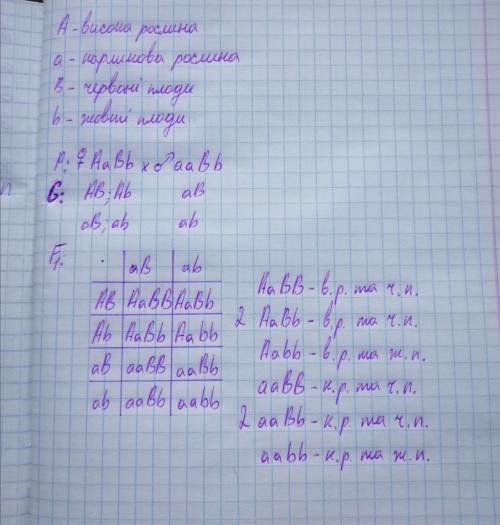 A - висока рослина
a - карликова рослина
B - червоні плоди
b - жовті плоди
P: ♀ AaBb x ♂ aaBb
G: AB; Ab aB
aB; ab ab
F₁:
aB ab
AB AaBB AaBb
Ab AaBb Aabb
aB aaBB aaBb
ab aaBb aabb
AaBB - в.р. та ч.п.
2 AaBb - в.р. та ч.п.
Aabb - в.р. та ж.п.
aaBB - к.р. та ч.п.
2 aaBb - к.р. та ч.п.
aabb - к.р. та ж.п.